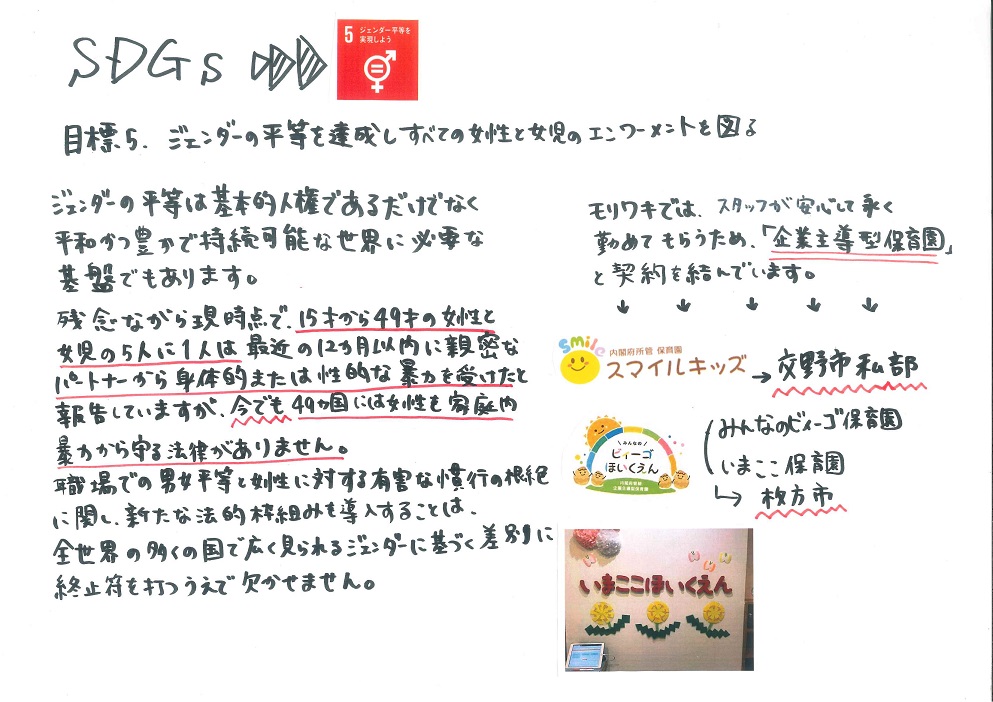 SDGs
5 ジェンダー平等を
実現しよう
目標5. ジェンダーの平等を達成しすべての女性と女児のエンワーメントを図る
ジェンダーの平等は基本的人権であるだけでなく
平和かつ豊かで持続可能な世界に必要な
基盤でもあります。
残念ながら現時点で、15才から49才の女性と
女児の5人に1人は最近の12カ月以内に親密な
パートナーから身体的または性的な暴力を受けたと
報告していますが、今でも49カ国には女性を家庭内
暴力から守る法律がありません。
職場での男女平等と女性に対する有害な慣行の根絶
に関し、新たな法的枠組みを導入することは、
全世界の多くの国で広く見られるジェンダーに基づく差別に
終止符を打つうえで欠かせません。
モリワキでは、スタッフが安心して永く
勤めてもらうため、「企業主導型保育園」
と契約を結んでいます。
↓ ↓ ↓ ↓ ↓
smile
内閣府所管 保育園
スマイルキッズ → 交野市私部
みんなの
ビィーゴ
ほいくえん
みんなのビィーゴ保育園
いまここ保育園
→ 枚方市
いまここほいくえん